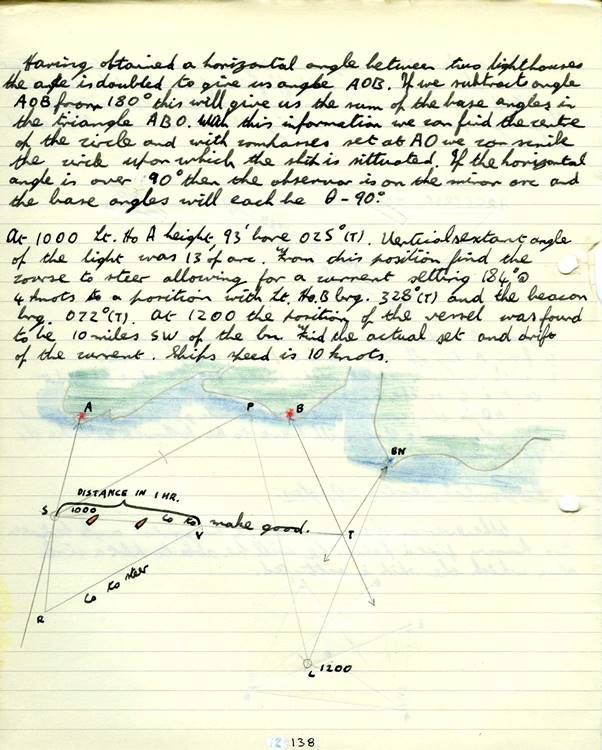 Having obtained a horizontal angle between two lighthouses
the angle is doubled to give us angle AOB. If we subtract angle
AOB from 180° this will give us the sum of the base angles in
the triangle ABO. With this information we can find the centre
of the circle and with compasses set at AO we can scribe
the circle upon which the ship is situated. If the horizontal
angle is over 90° then the observer is on the minor arc and
the base angles will each be θ - 90°.
At 1000 Lt. Ho A height 93' bore 025°(T). Vertical sextant angle
of the light was 13' of arc. From this position find the
course to steer allowing for a current setting 184° @
4 knots to a position with Lt. Ho. B brg. 328°(T) and the beacon
brg. 072°(T). At 1200 the position of the vessel was found
to be 10 miles SW of the bn. Find the actual set and drift
of the current. Ships speed is 10 knots.
A
P
B
BN
DISTANCE IN 1 HR.
S
1000
Co to make good.
V
T
Co to steer
R
L 1200
12 138